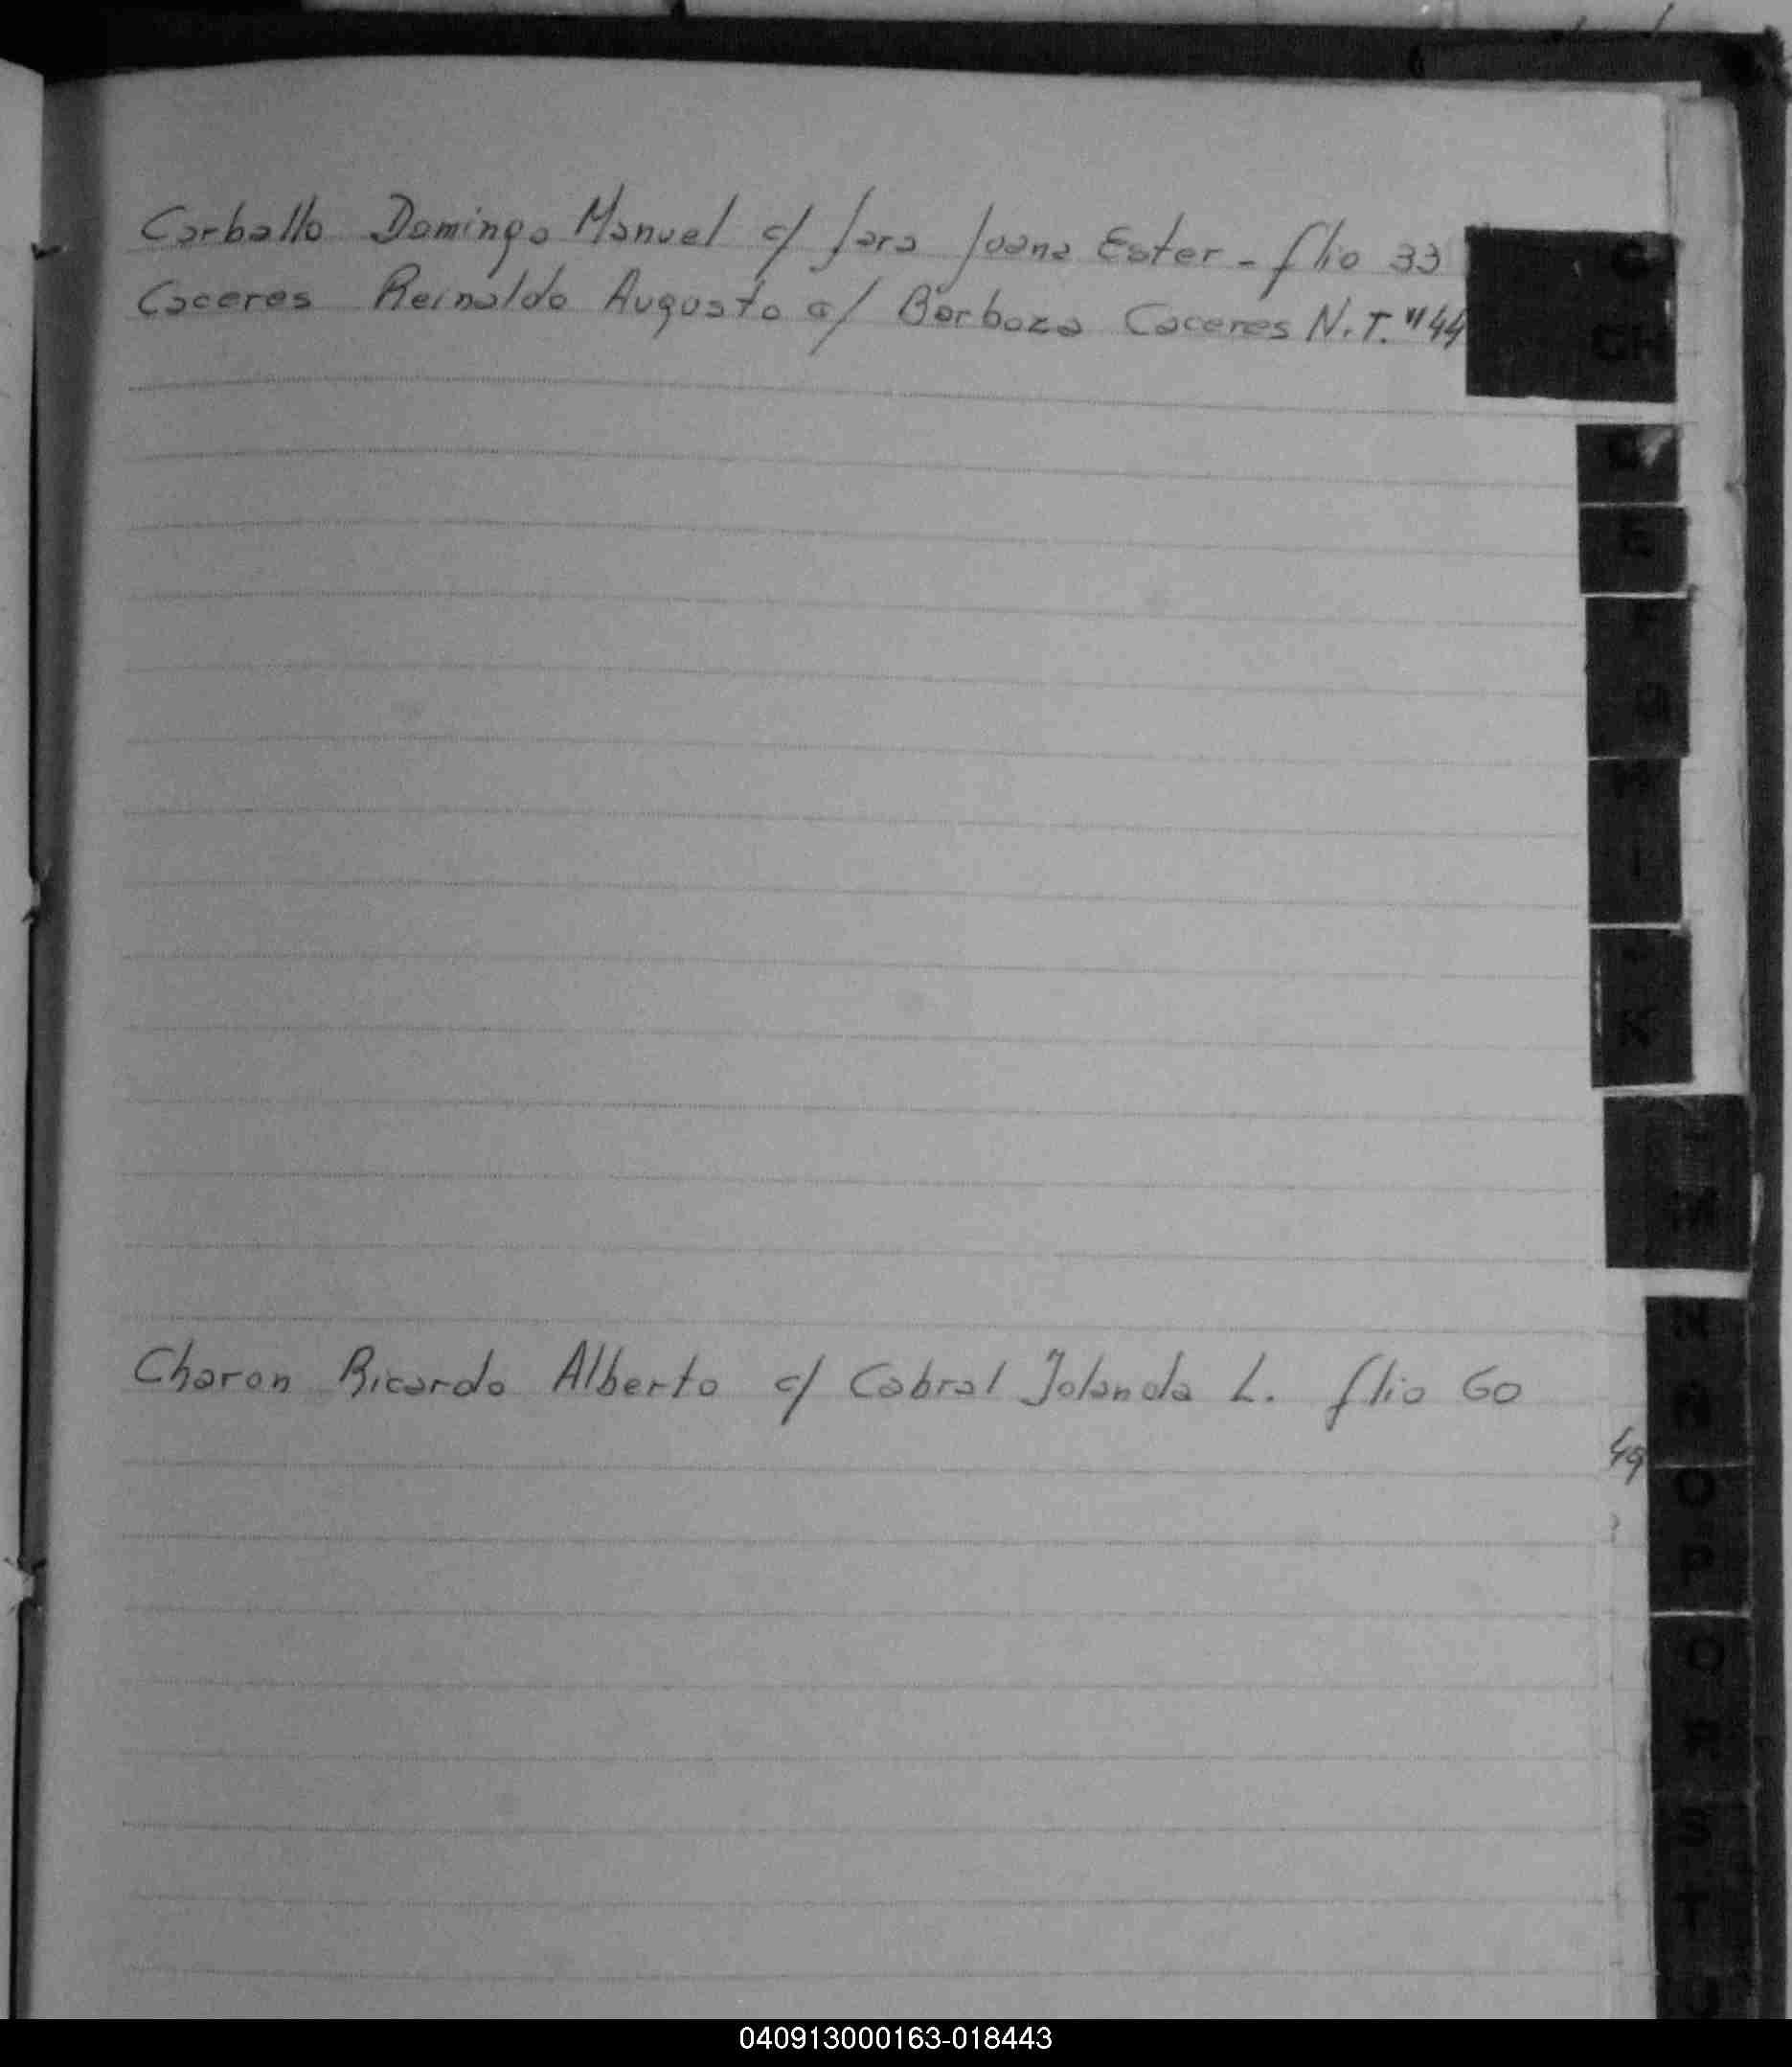 Carballo Domingo Manuel c/ Jara Juana Ester - flio 33
Caceres Reinaldo Augusto c/ Barboza Caceres N.T. " 44
Charon Ricardo Alberto c/ Cabral Iolanda L. flio 60
49
C
CH
E
G
I
K
M
N
Ñ
O
P
Q
R
S
T
U
040913000163-018443